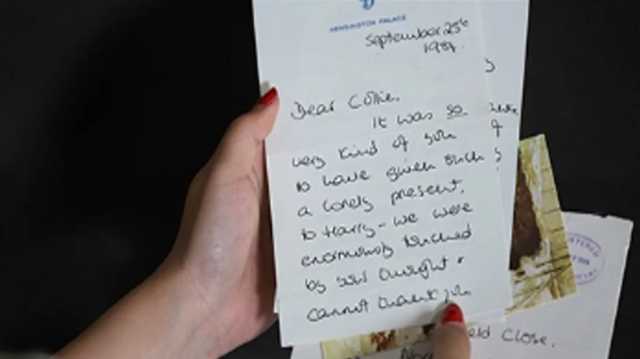 KENSINGTON PALACE
September 25th
1984.
Dear Collie,
It was so
very kind of you
to have given such
a lovely present,
to Harry - we were
enormously touched
by your thought &
cannot thank you
ld Close.